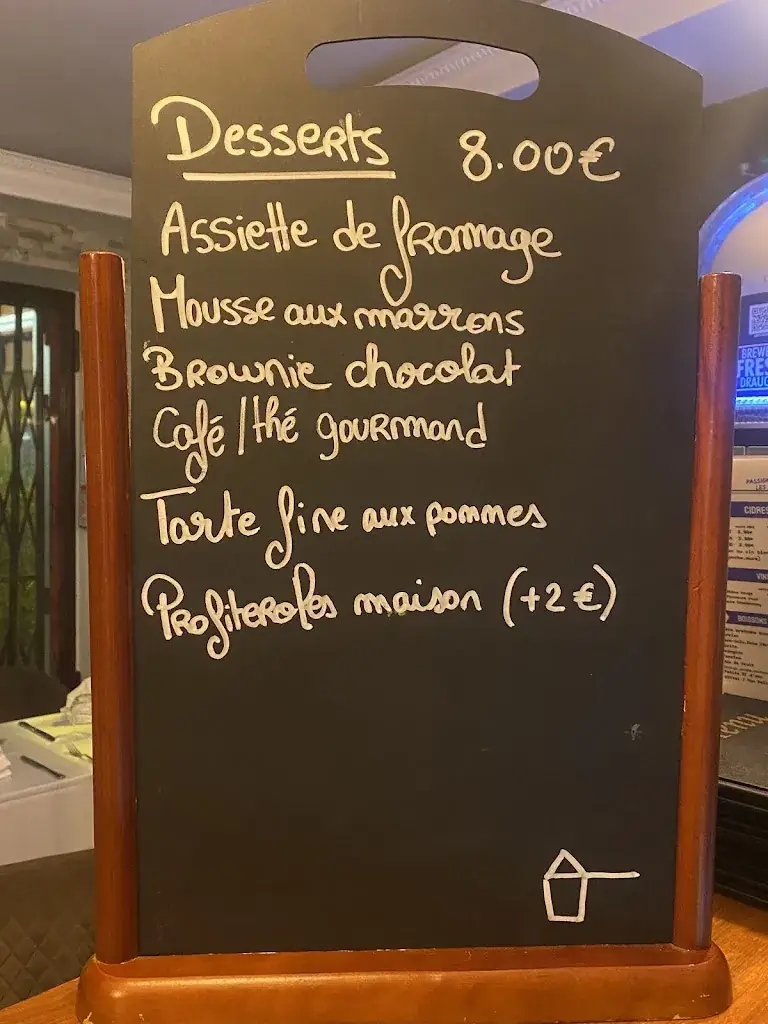 Desserts 8.00€
Assiette de fromage
Mousse aux marrons
Brownie chocolat
Café/thé gourmand
Tarte fine aux pommes
Profiteroles maison (+2€)
BREWE
FRES
DRAUG
PASSION
LES
CIDRES
VINS
BOISSONS